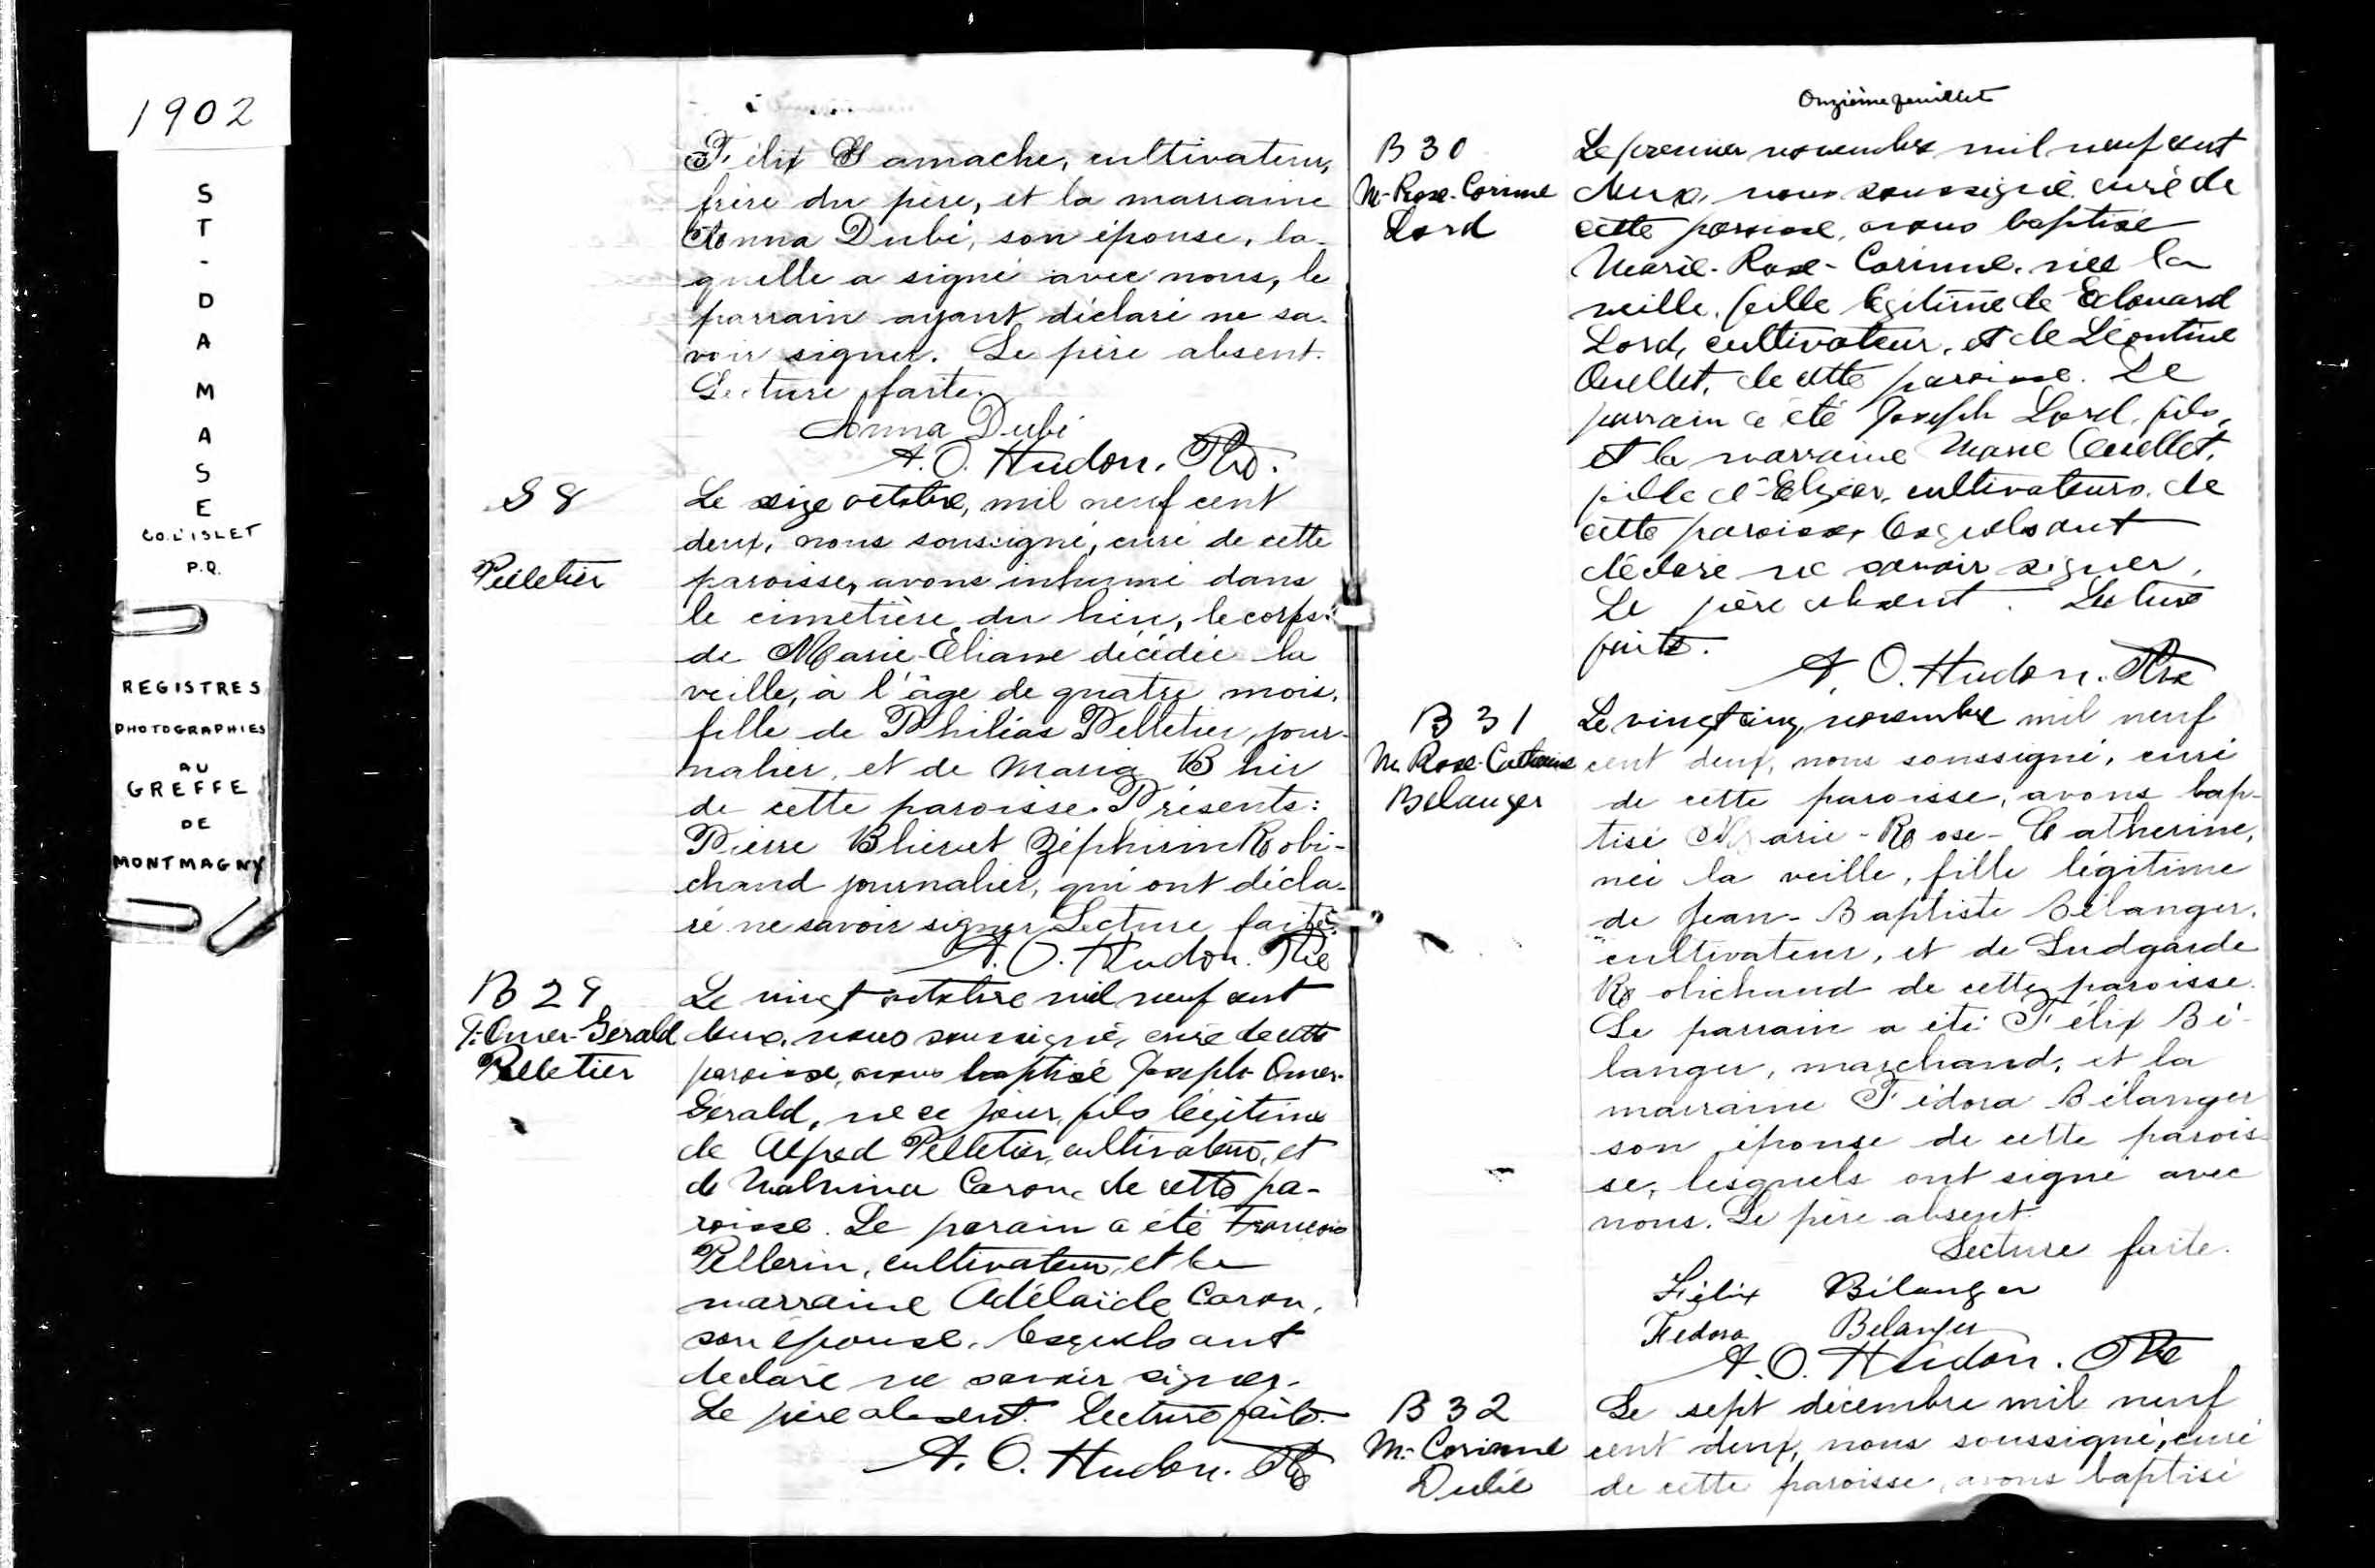 1902
ST-DAMASE
CO. L'ISLET
P.Q.
REGISTRES
PHOTOGRAPHIES
AU
GREFFE
DE
MONTMAGNY
Félix Gamache, cultivateur,
frère du père, et la marraine
Anna Dubé, son épouse, la-
quelle a signé avec nous, le
parrain ayant déclaré ne sa-
voir signer. Le père absent.
Lecture faite.
Anna Dubé
A. O. Hudon, Ptre.
S 8
Pelletier
Le seize octobre, mil neuf cent
deux, nous soussigné, curé de cette
paroisse, avons inhumé dans
le cimetière du lieu, le corps
de Marie-Éliane décédée la
veille, à l'âge de quatre mois,
fille de Philias Pelletier, jour-
nalier, et de Maria Bhir
de cette paroisse. Présents:
Pierre Bhiret Zéphirin Robi-
chaud journalier, qui ont décla-
ré ne savoir signer Lecture faite.
A. O. Hudon. Ptre
B 29
J. Omer-Gérald
Pelletier
Le vingt octobre mil neuf cent
deux, nous soussigné, curé de cette
paroisse, avons baptisé Joseph-Omer-
Gérald, né ce jour, fils légitime
de Alfred Pelletier, cultivateur, et
de Malvina Caron, de cette pa-
roisse. Le parain a été François
Pellerin, cultivateur, et la
marraine Adélaïde Caron,
son épouse, lesquels ont
declaré ne savoir signer.
Le père absent. Lecture faite.
A. O. Hudon. Ptre
Onzième feuillet
B 30
M-Rose-Corinne
Lord
Le premier novembre mil neuf cent
deux, nous soussigné curé de
cette paroisse, avons baptisé
Marie-Rose-Corinne, née la
veille, fille légitime de Edouard
Lord, cultivateur, et de Léontine
Ouellet, de cette paroisse. Le
parrain a été Joseph Lord, fils,
et la marraine Marie Ouellet,
fille d'Elzéar, cultivateurs, de
cette paroisse, lesquels ont
déclaré ne savoir signer.
Le père absent. Lecture
faite.
A. O. Hudon. Ptre
B 31
M. Rose-Catherine
Belanger
Le vingt cinq novembre mil neuf
cent deux, nous soussigné, curé
de cette paroisse, avons bap-
tisé Marie-Rose-Catherine,
née la veille, fille légitime
de Jean-Baptiste Bélanger,
cultivateur, et de Ludgarde
Robichaud de cette paroisse.
Le parrain a été Félix Bé-
langer, marchand, et la
marraine Fédora Bélanger
son épouse de cette parois-
se, lesquels ont signé avec
nous. Le père absent.
Lecture faite.
Félix Bélanger
Fedora Belanger
A. O. Hudon. Ptre
B 32
M.-Corinne
Dubé
Le sept décembre mil neuf
cent deux, nous soussigné, curé
de cette paroisse, avons baptisé